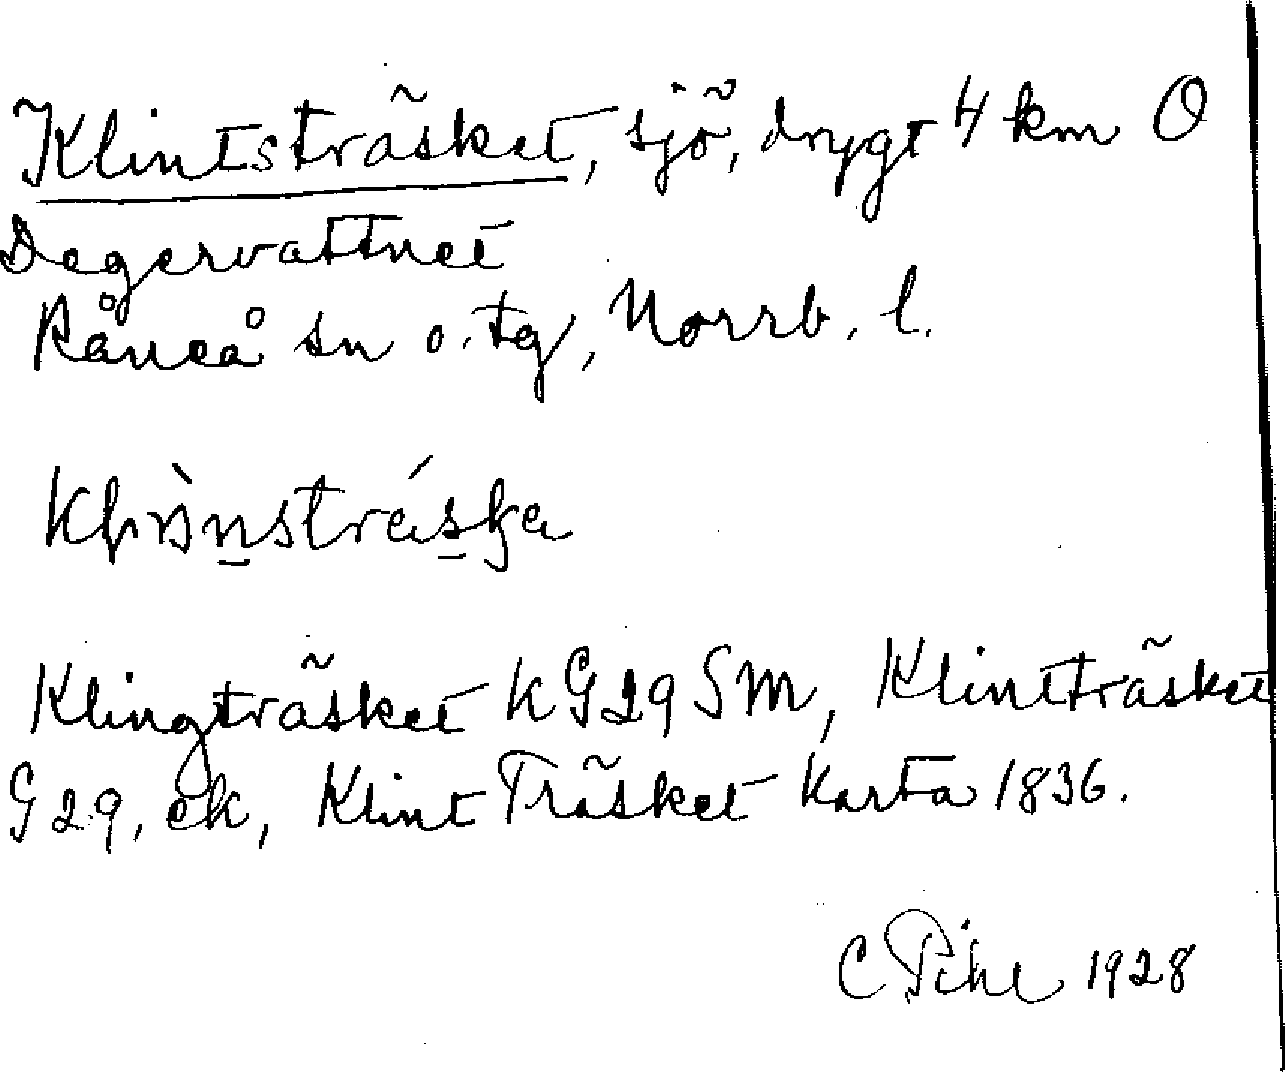 Klintsträsket, sjö, drygt 4 km O
Degervattnet
Råneå sn o. tg, Norrb. l.
Klingträsket KG29 SM, Klintträsket
G29, ek, Klint Träsket Karta 1836.
C Pihl 1928